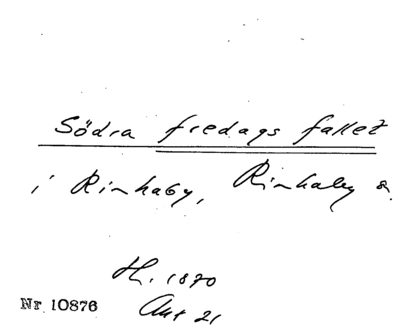 Södra fredags fallet
i Rinkaby, Rinkaby s.
H. 1870
Nr 10876
Akt 21